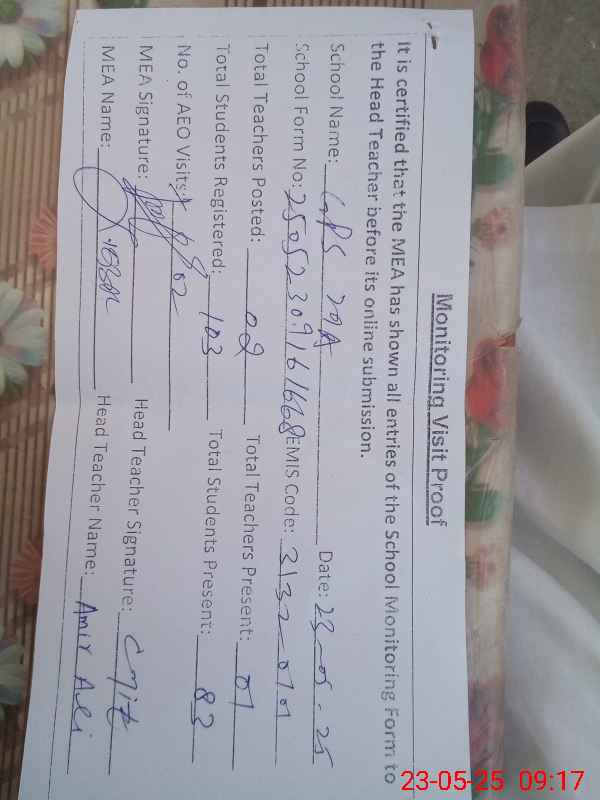 Monitoring Visit Proof
It is certified that the MEA has shown all entries of the School Monitoring Form to
the Head Teacher before its online submission.
School Name: GPS 27A Date: 23-05-25
School Form No: EMIS Code:
Total Teachers Posted: 02 Total Teachers Present: 01
Total Students Registered: 103 Total Students Present: 83
No. of AEO Visits: 02
MEA Signature: Head Teacher Signature: Amir
MEA Name: Head Teacher Name: Amir Ali
23-05-25 09:17